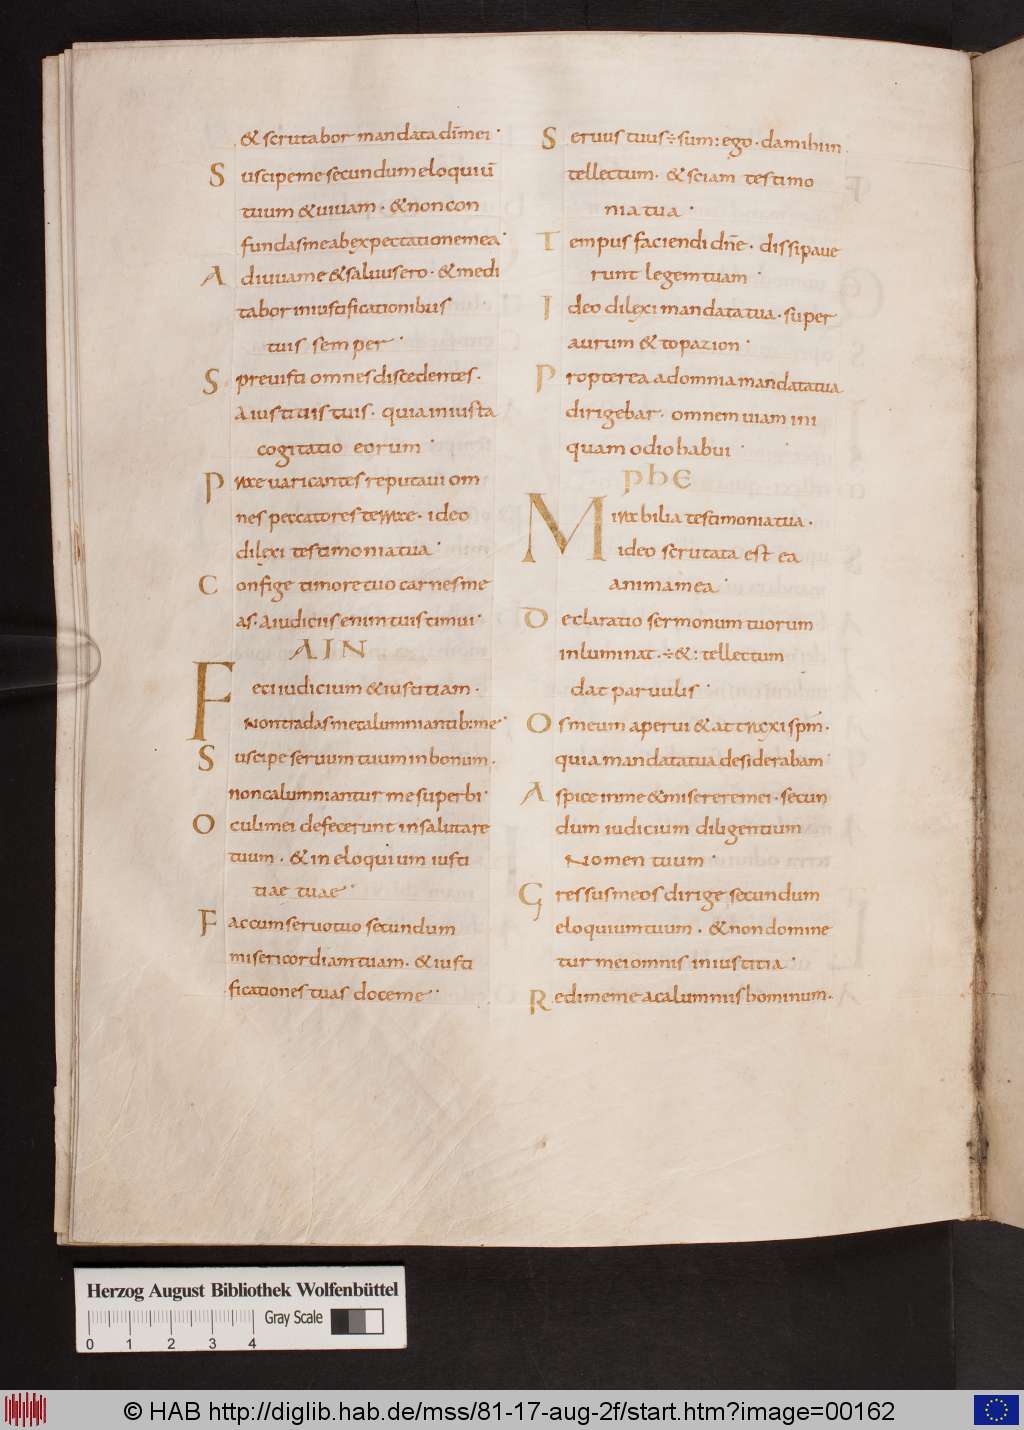 & scrutabor mandata dīmei·
Suscipeme secundum eloquiū
tuum & uiuam· & non con
fundasme ab expectatione mea·
Adiuuame & saluus ero· & medi
tabor in iustificationibus
tuis semper·
Spreuisti omnes discedentes·
A iustitiis tuis· quia iniusta
cogitatio eorum·
Praeuaricantes reputaui om
nes peccatores terrae· ideo
dilexi testimonia tua·
Confige timore tuo carnes me
as· A iudiciis enim tuis timui·
AIN
Feci iudicium & iustitiam·
Non tradas me calumniantib: me·
Suscipe seruum tuum in bonum·
non calumniantur me superbi·
Oculi mei defecerunt in salutare
tuum· & in eloquium iusti
tiae tuae·
Fac cum seruo tuo secundum
misericordiam tuam· & iusti
ficationes tuas doceme·
Seruus tuus ÷ sum: ego· da mihi in
tellectum· & sciam testimo
nia tua·
Tempus faciendi dn̄e· dissipaue
runt legem tuam·
Ideo dilexi mandata tua· super
aurum & topazion·
Propterea ad omnia mandata tua
dirigebar· omnem uiam ini
quam odio habui·
PHE
Mirabilia testimonia tua·
ideo scrutata est ea
anima mea·
Declaratio sermonum tuorum
inluminat· ÷ &: tellectum
dat paruulis·
Os meum aperui & attraxi spm̄·
quia mandata tua desiderabam·
Aspice in me & miserere mei· secun
dum iudicium diligentium
Nomen tuum·
Gressus meos dirige secundum
eloquium tuum· & non domine
tur mei omnis iniustitia·
Redime me a calumniis hominum·
Herzog August Bibliothek Wolfenbüttel
Gray Scale
0 1 2 3 4
© HAB http://diglib.hab.de/mss/81-17-aug-2f/start.htm?image=00162